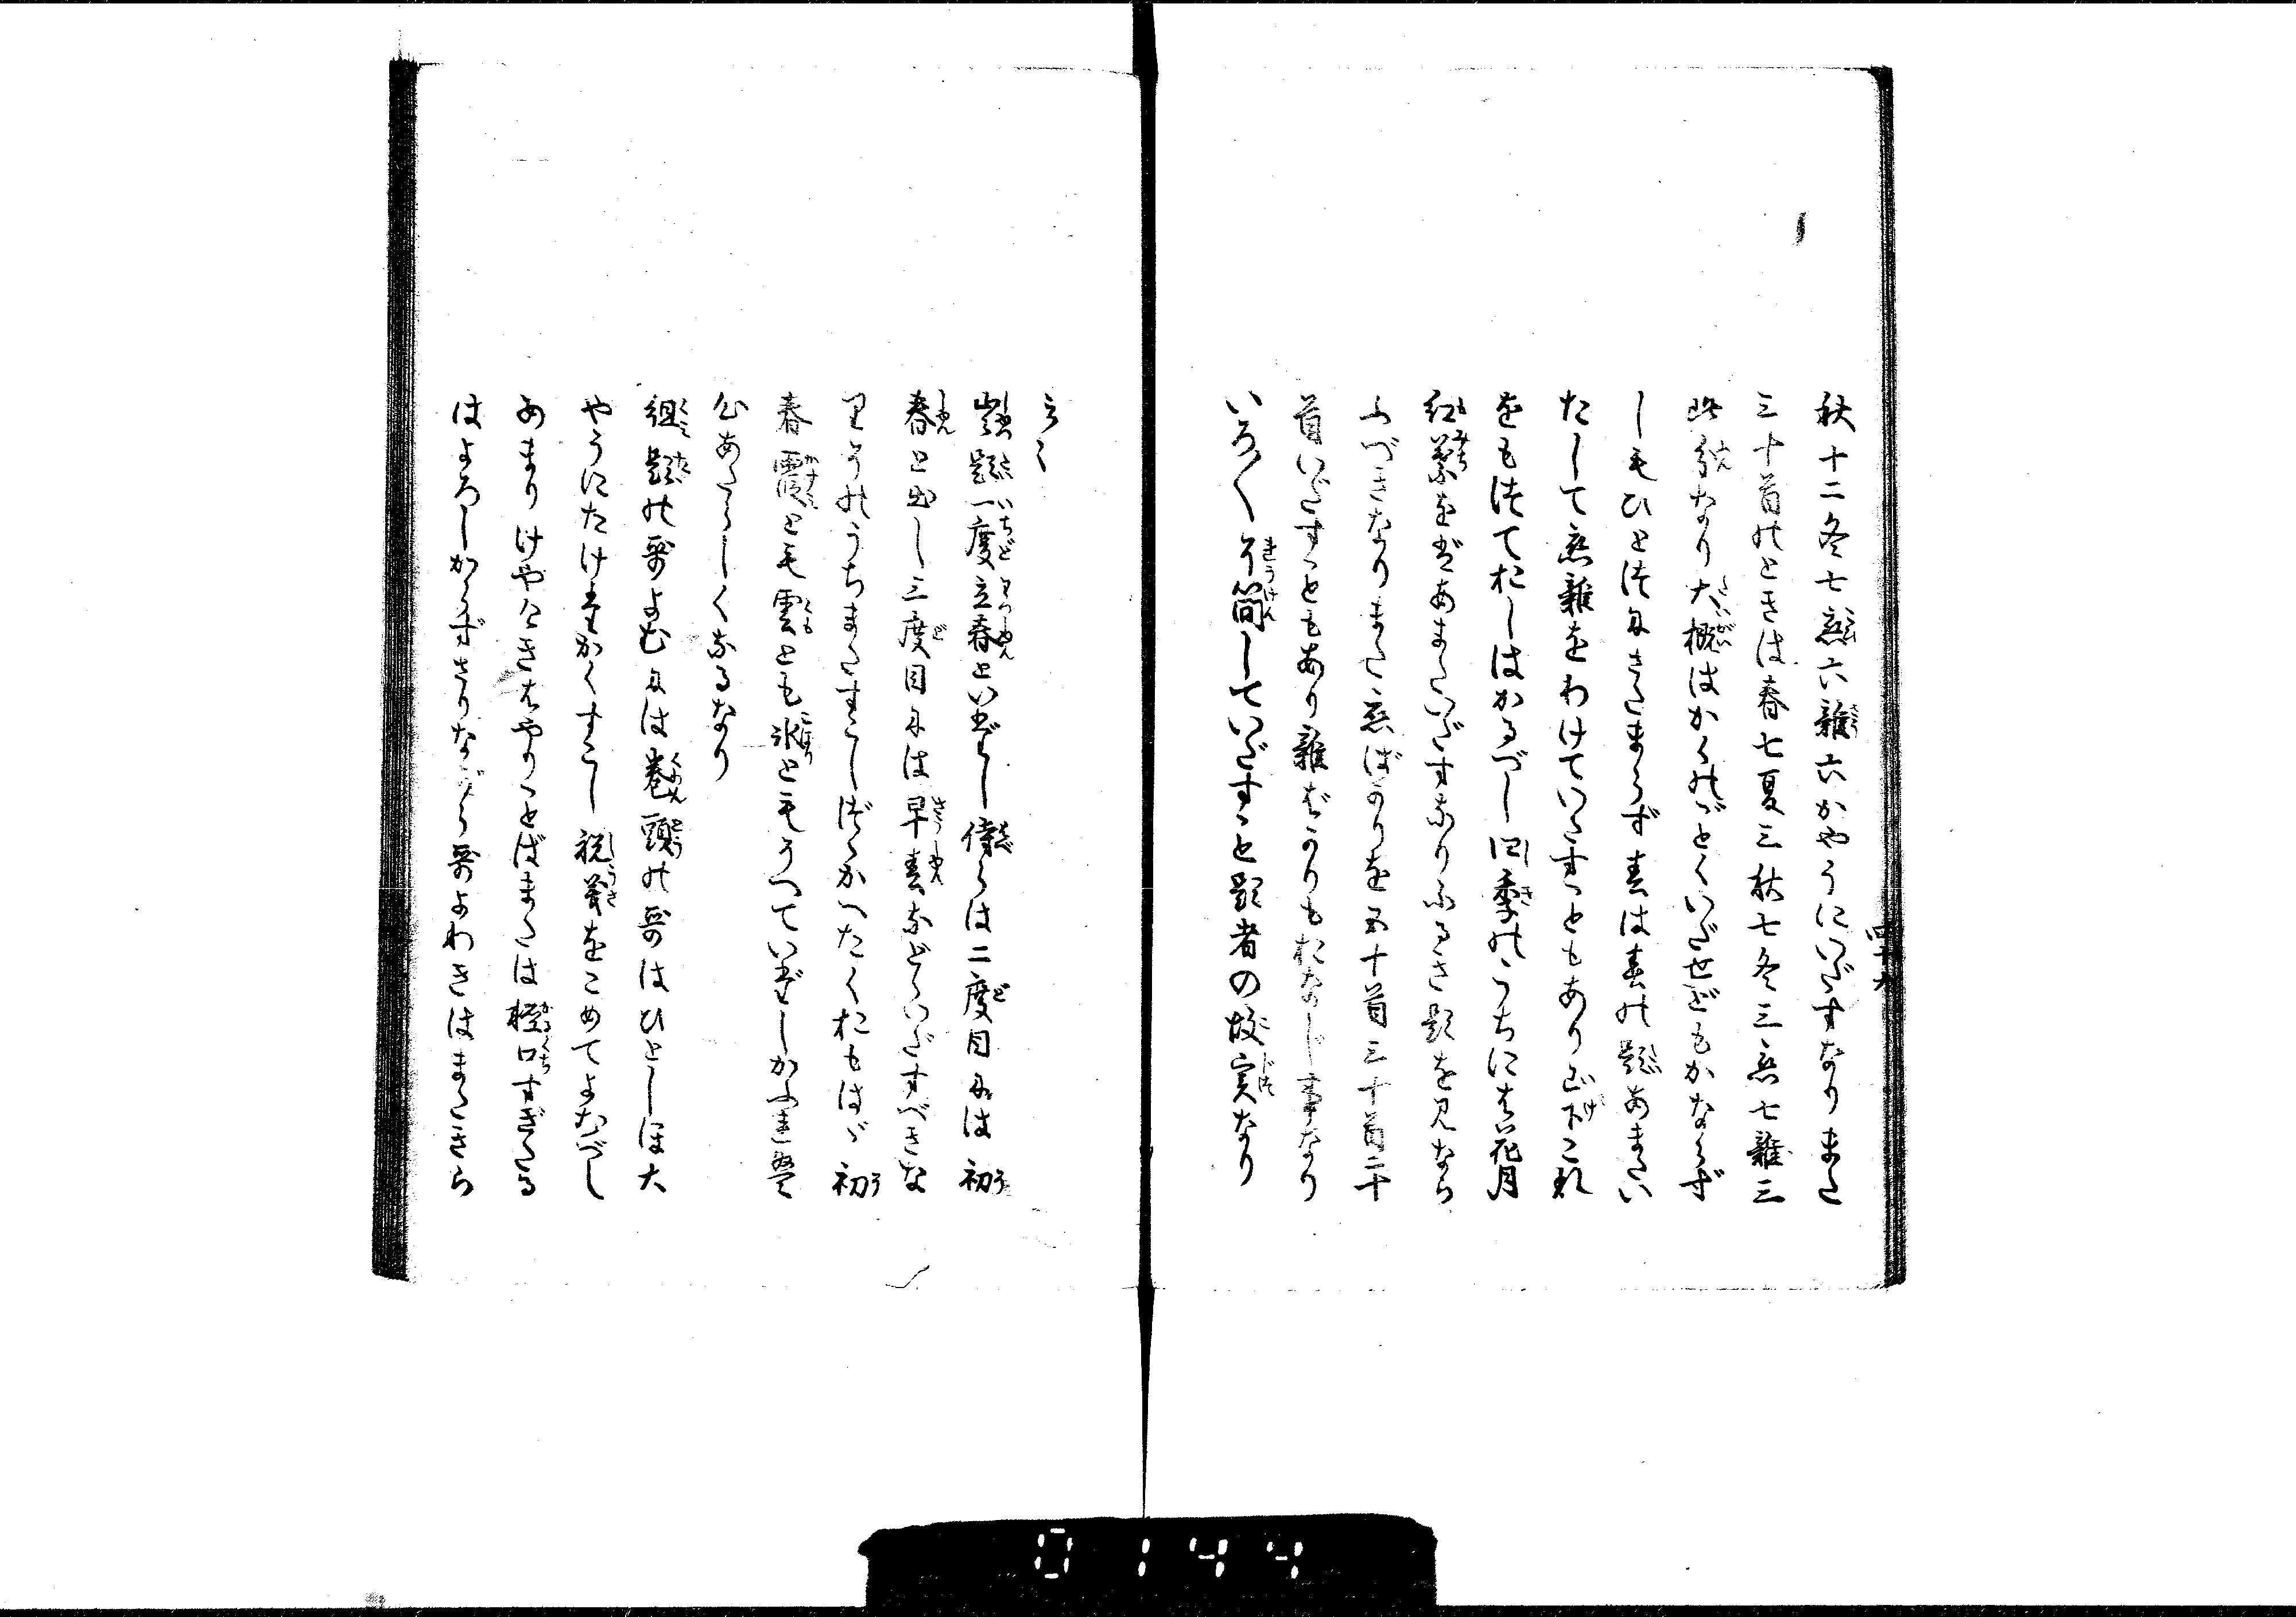 秋十二冬七恋六雑六かやうにいだすなりまた
三十首のときは春七夏三秋七冬三恋七雑三
此分なり大概はかくのごとくいだせどもかならず
しもひとつにさだまらず春は春の題あまたい
だして恋雑をわけていだすこともあり山下これ
をもつておしはかるべし四季のうちにも花月
紅葉をばあまたいだすなりふるき題を見なら
ふべきなりまた恋ばかりを五十首三十首二十
首いだすこともあり雑ばかりもおなじ事なり
いろ〳〵了簡していだすこと題者の故実なり
四十九
云々
題一度立春といだし侍らは二度目には初
春と出し三度目には早春などいだすべきな
りそのうちまたすこしづゝかへたくおもはゞ初
春霞とも雲とも氷ともそへていだしかふれば
心あたらしくなるなり
組題の哥よむには巻頭の哥はひとしほ大
やうにたけたかくすこし祝義をこめてよむべし
あまりけやけきはやりことばまたは軽口すぎたる
はよろしからずさりながら哥よわきはまたきら
0144